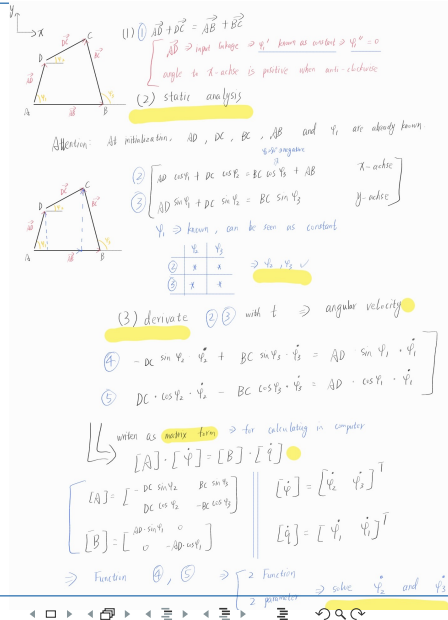 y
x
(1) ① AD + DC = AB + BC
AD ⇒ input
known as constant ⇒ φ₁'' = 0
angle to X-achse is positive when anti-clockwise
(2) static analysis
Attention: At initialization, AD, DC, BC, AB and φ₁ are already known
② AD cosφ₁ + DC cosφ₂ = BC cosφ₃ + AB x-achse
③ AD sinφ₁ + DC sinφ₂ = BC sinφ₃ y-achse
φ₁ ⇒ known, can be seen as constant
φ₂ φ₃
② x x
③ x x
⇒ φ₂, φ₃ ✓
(3) derivate ② ③ with t ⇒ angular velocity
④ -DC sinφ₂ · φ̇₂ + BC sinφ₃ · φ̇₃ = AD · sinφ₁ · φ̇₁
⑤ DC · cosφ₂ · φ̇₂ - BC cosφ₃ · φ̇₃ = AD · cosφ₁ · φ̇₁
written as matrix form ⇒ for calculating in computer
[A] · [φ̇] = [B] · [q̇]
[A] = [ -DC sinφ₂ BC sinφ₃
DC cosφ₂ -BC cosφ₃ ]
[φ̇] = [φ̇₂ φ̇₃]ᵀ
[B] = [ AD·sinφ₁ 0
0 -AD·cosφ₁ ]
[q̇] = [φ̇₁ φ̇₁]ᵀ
⇒ Function ④, ⑤ ⇒ { 2 Function
2 parameter
⇒ solve φ̇₂ and φ̇₃